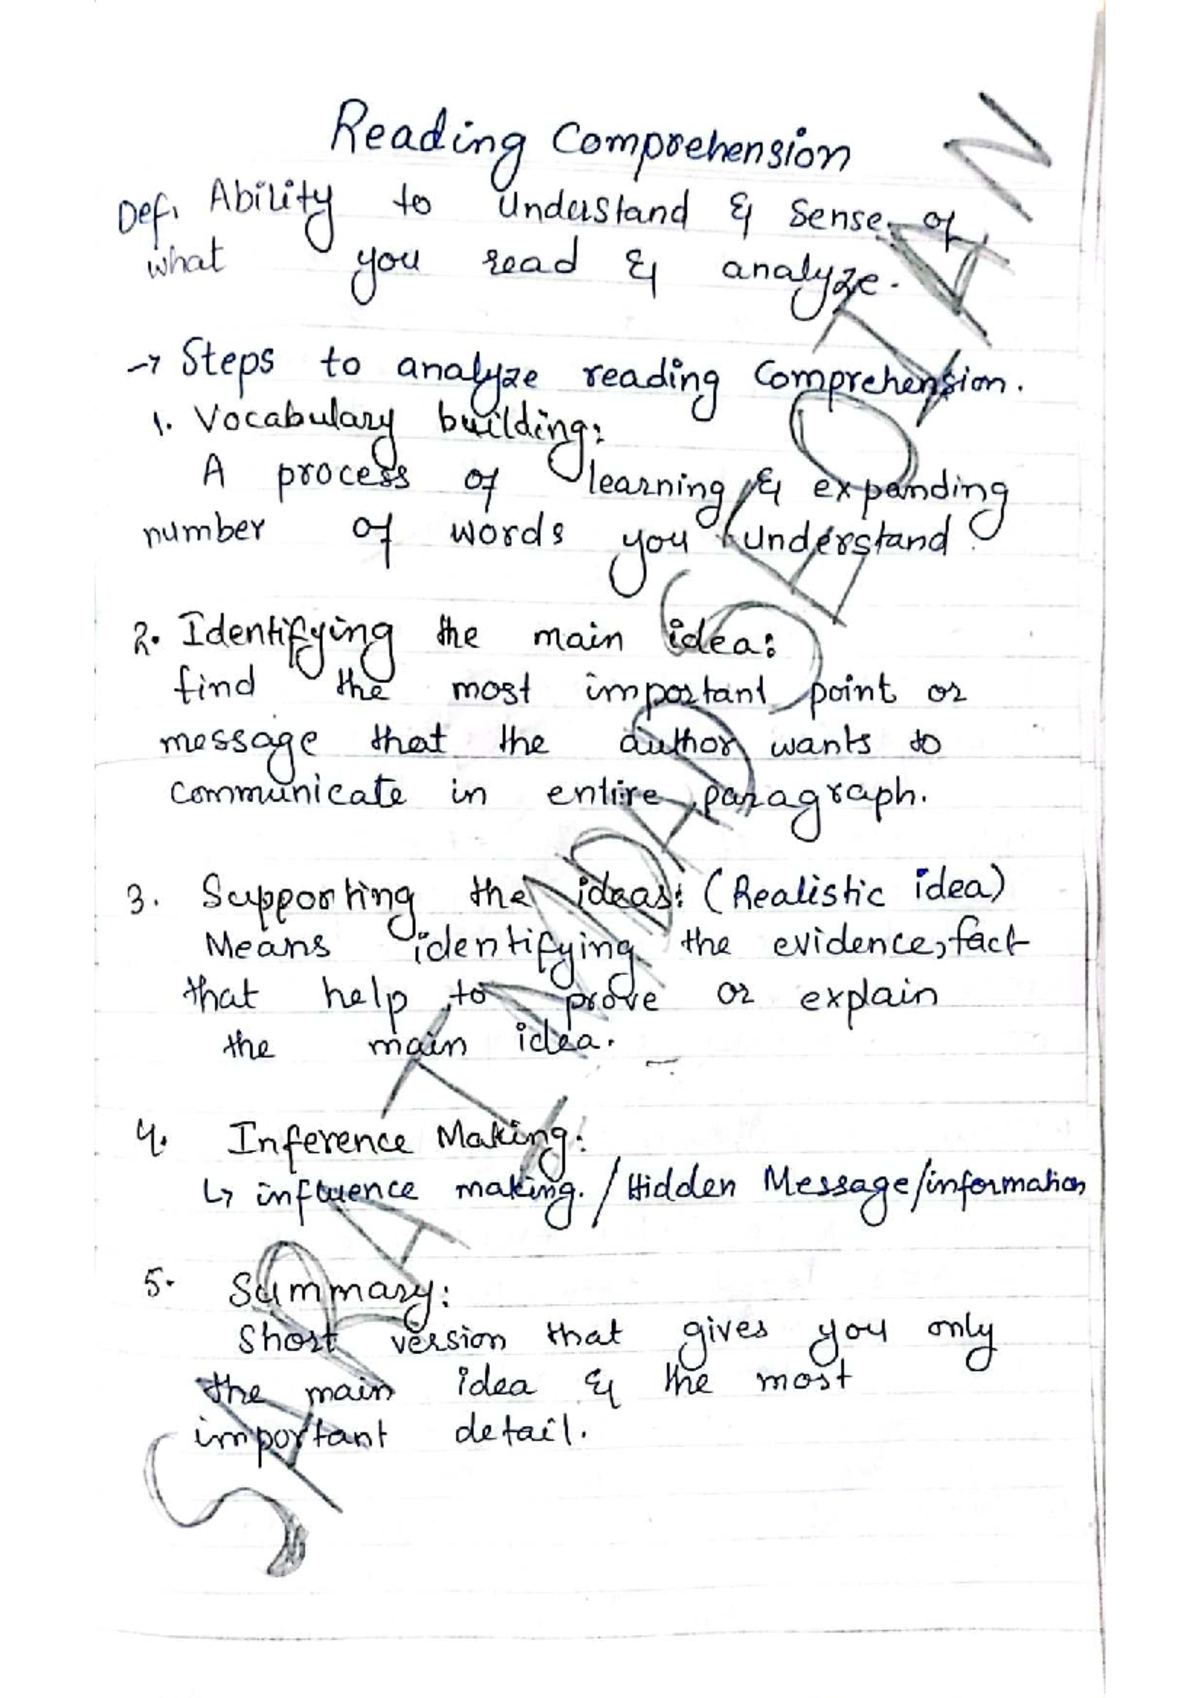 Reading Comprehension
Def, Ability to understand & sense of
what you read & analyze.
→ Steps to analyze reading Comprehension.
1. Vocabulary building:
A process of learning & expanding
number of words you understand.
2. Identifying the main idea:
find the most important point or
message that the author wants to
communicate in entire paragraph.
3. Supporting the ideas: (Realistic idea)
Means identifying the evidence, fact
that help to prove or explain
the main idea.
4. Inference Making:
↳ influence making. / Hidden Message/information
5. Summary:
Short version that gives you only
the main idea & the most
important detail.